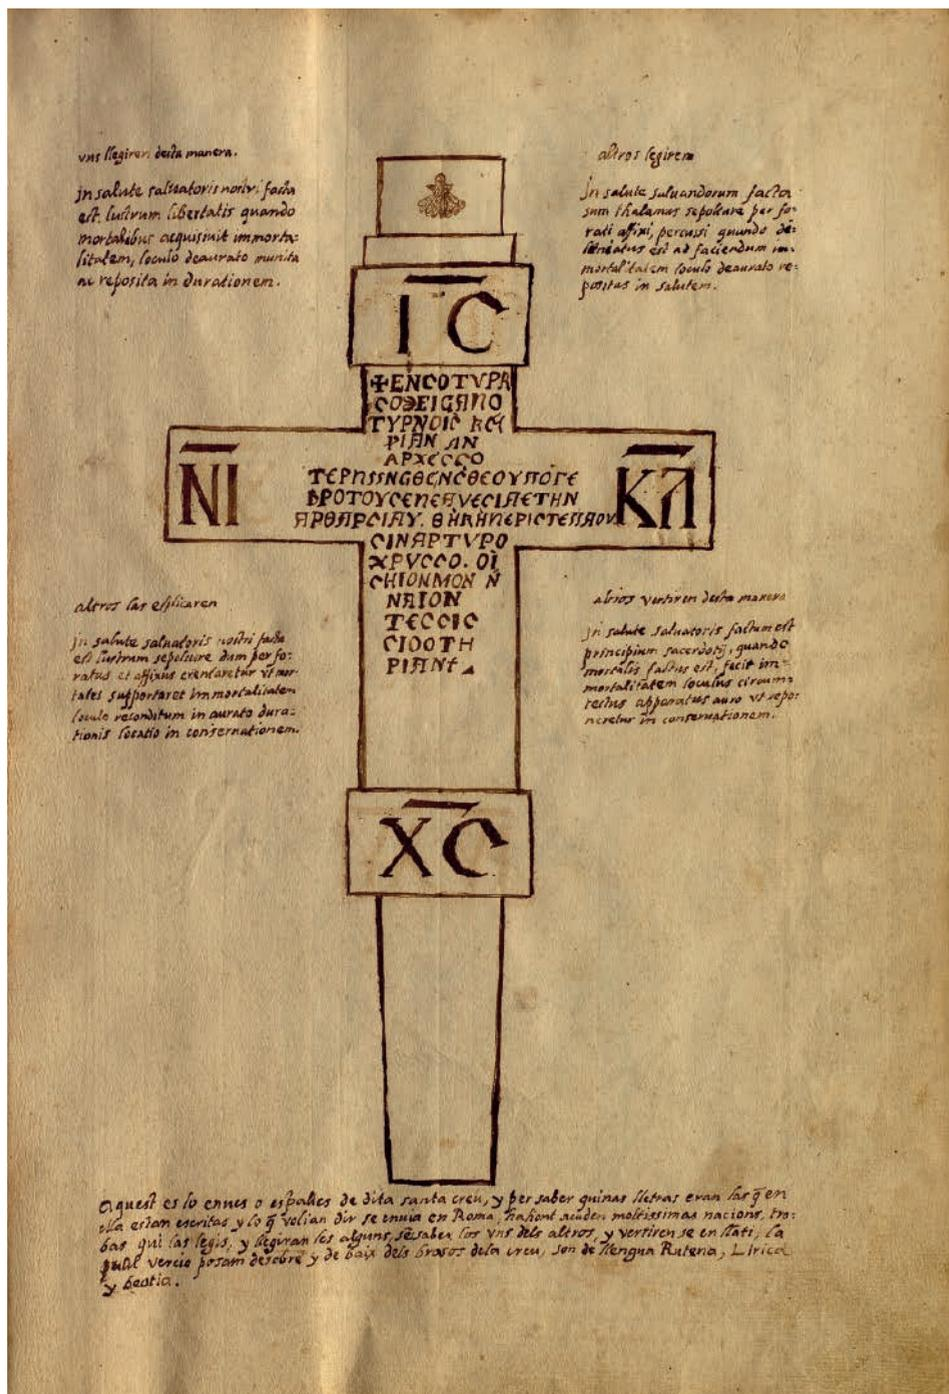 vns llegiren desta manera.
jn salute saluatoris nostri facta
est. lustrum libertatis quando
mortalibus acquisiuit immorta:
litatem, loculo deaurato munita
ac reposita in durationem.
altros legiren
jn salute saluandorum factos
sum thalamus sepolture per fo:
rati affixi, percussi quando de:
est ad faciendum im:
mortalitatem loculo deaurato re:
positus in salutem.
IC
✠ENCOTVPA
TYPNOIC
PIAN AN
APXECCO
NI
KA
CINAPTVPO
XPVCCO. OI
CHIONMON N
NAION
TECCIC
CIOOTH
PIANE
altros las esplicaren
jn salute saluatoris nostri facta
est lustrum sepolture dum perfo:
ratus et affixus
tales supportaret immortalitatem
loculo reconditum in aurato dura:
tionis locatio in conseruationem.
altros vertiren desta manera
jn salute saluatoris factum est
principium sacerdotij, quando
mortalis factus est, fecit im:
mortalitatem loculus circum:
tectus apparatus auro vt repo:
neretur in conseruationem.
XC
Aquest es lo enues o espalles de dita santa creu, y per saber quinas lletras eran las q̃ en
ella estan escritas y lo q̃ volian dir se enuia en Roma, hahont acuden moltissimas nacions, tro:
bas qui las legis, y llegiran les alguns, sẽ saber los vns dels altros, y vertiren se en llati, la
qual vercio posam desobre y de baix dels brasos dela creu, son de llengua Rutena, Lirica
y beotia.